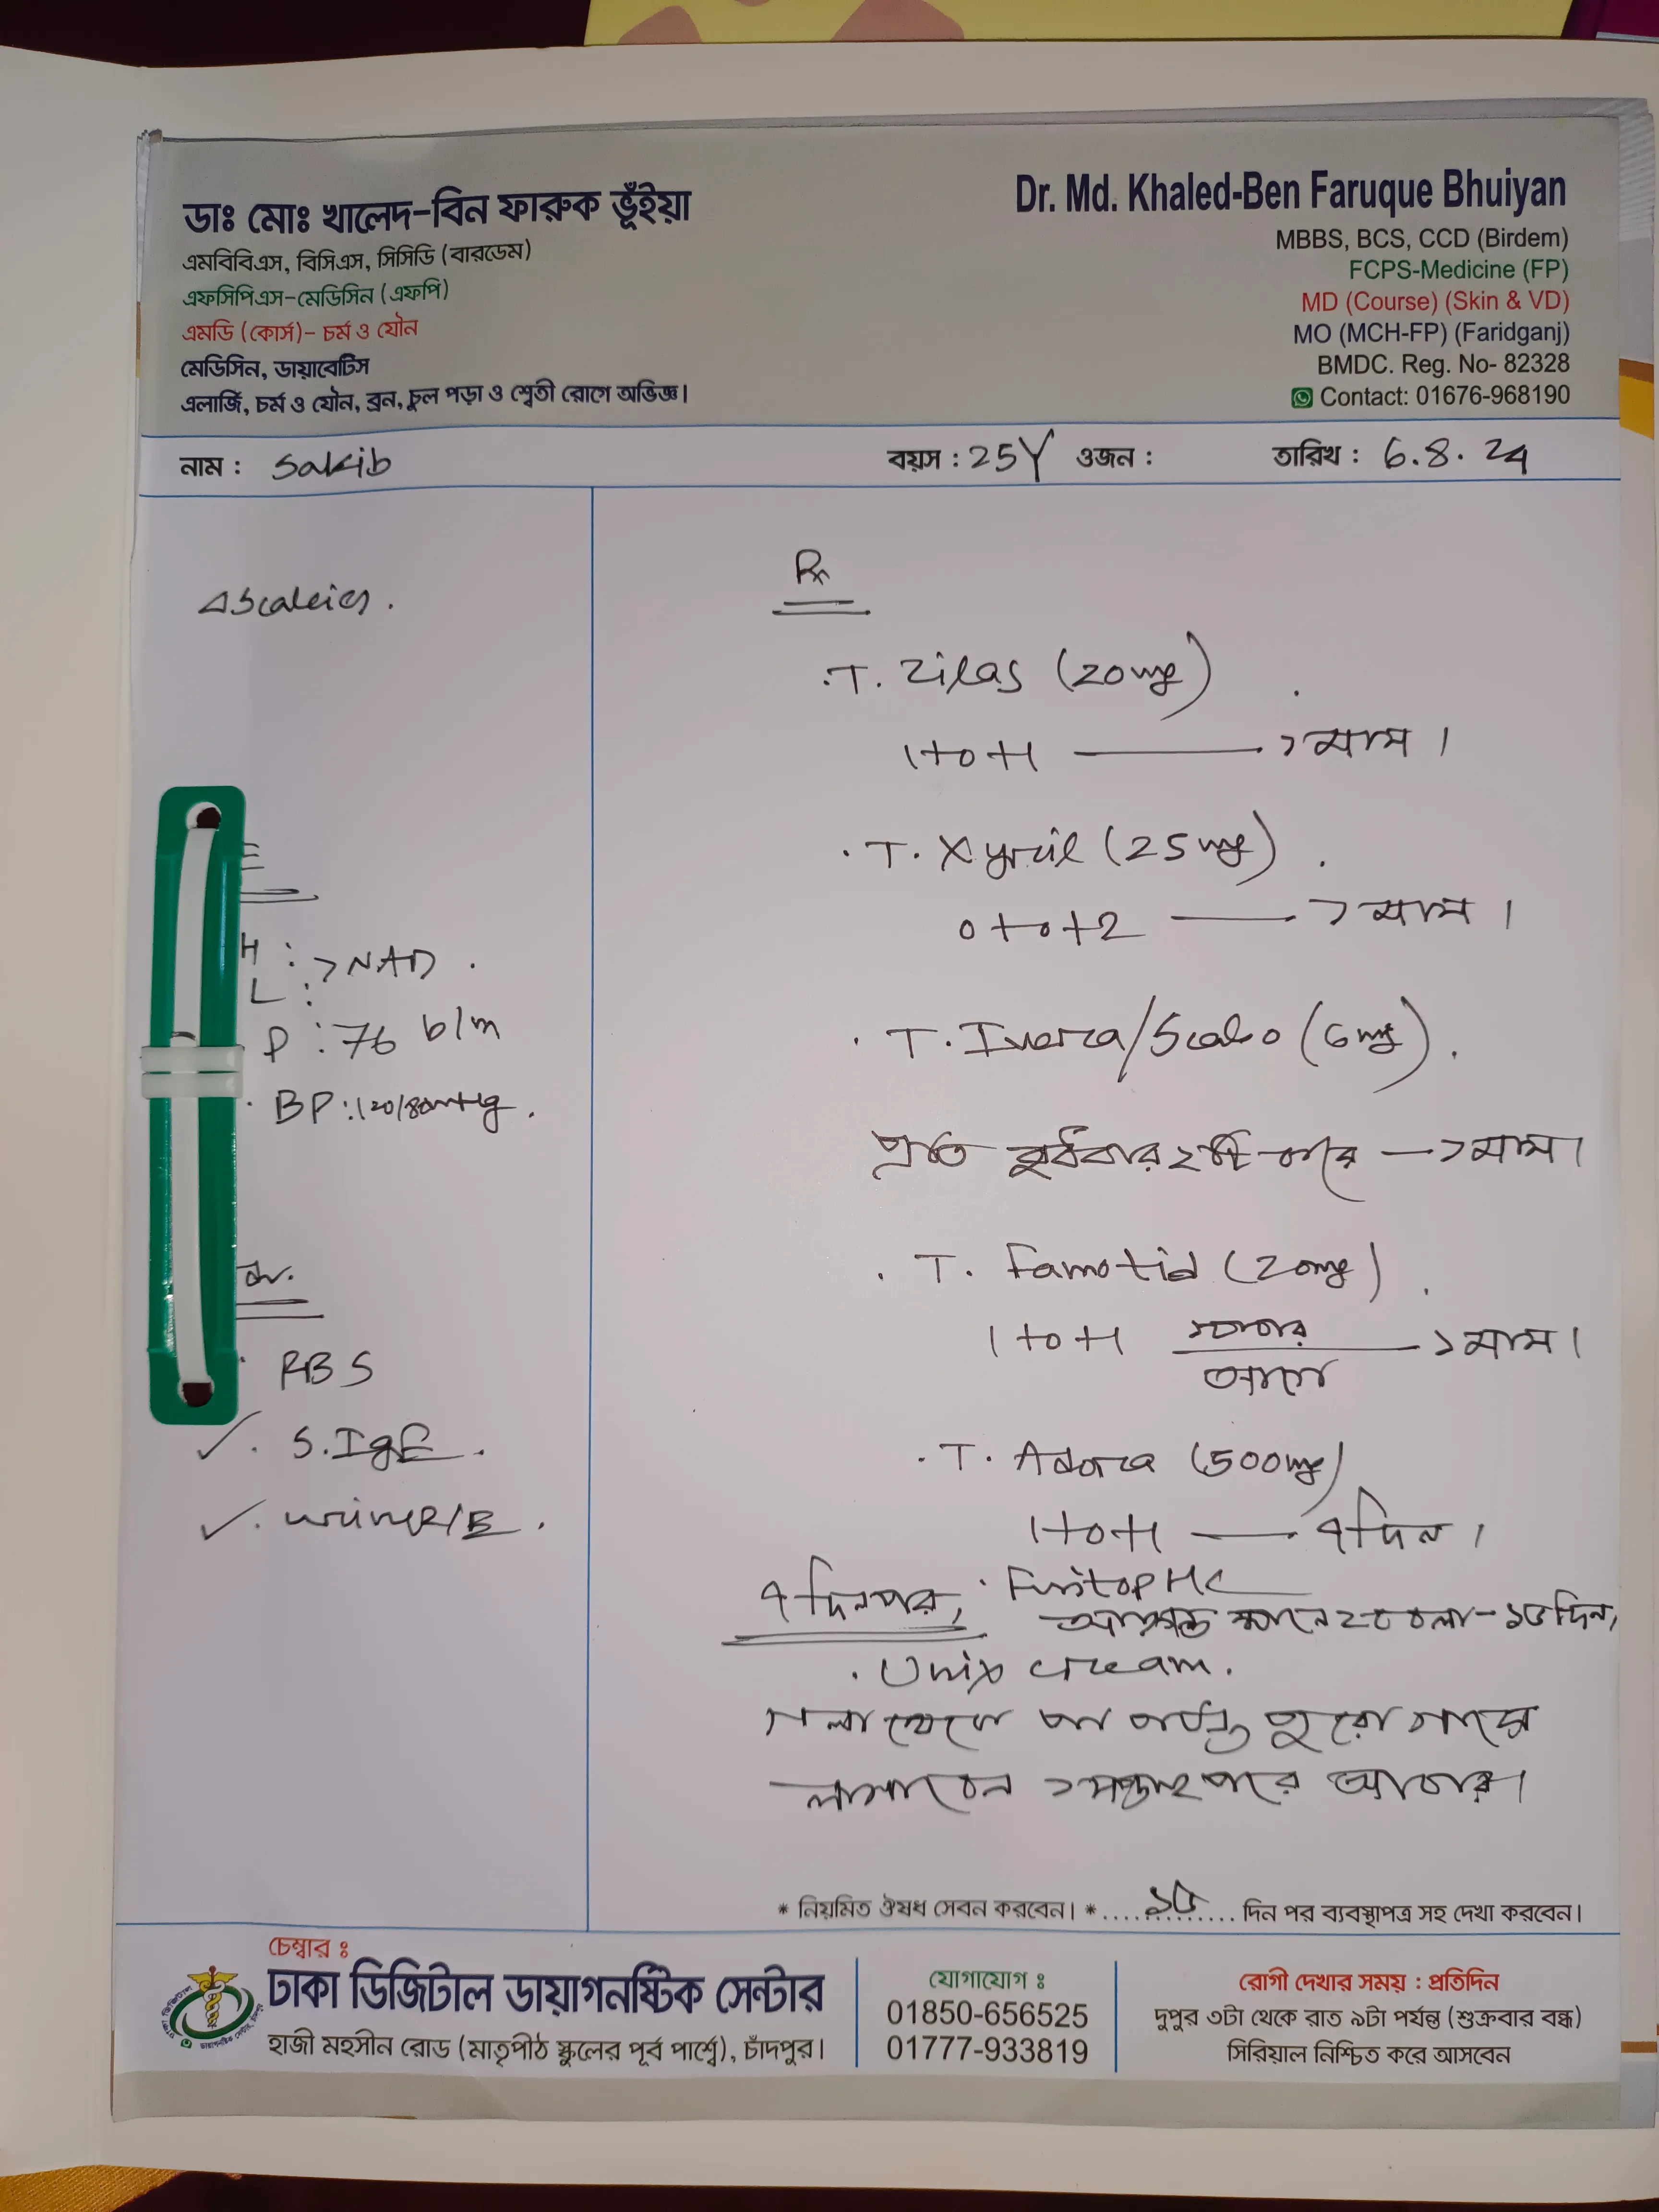 ডাঃ মোঃ খালেদ-বিন ফারুক ভূঁইয়া
এমবিবিএস, বিসিএস, সিসিডি (বারডেম)
এফসিপিএস-মেডিসিন (এফপি)
এমডি (কোর্স)- চর্ম ও যৌন
মেডিসিন, ডায়াবেটিস
এলার্জি, চর্ম ও যৌন, ব্রন, চুল পড়া ও শ্বেতী রোগে অভিজ্ঞ।
Dr. Md. Khaled-Ben Faruque Bhuiyan
MBBS, BCS, CCD (Birdem)
FCPS-Medicine (FP)
MD (Course) (Skin & VD)
MO (MCH-FP) (Faridganj)
BMDC. Reg. No- 82328
Contact: 01676-968190
নাম : Sakib বয়স : 25Y ওজন : তারিখ : 6.8.24
H :
L : > NAD.
P : 76 b/m
BP : 120/80mmHg.
RBS
S. IgE.
Urine R/E.
Rx
T. Zilas (20mg)
1+0+1 — ১ মাস।
T. Xyril (25mg)
0+0+2 — ১ মাস।
T. Ivera/Scabo (6mg).
প্রতি বুধবার ২টি করে — ১ মাস।
T. Famotid (20mg)
1+0+1 খাবার আগে — ১ মাস।
T. Adora (500mg)
1+0+1 — ৭ দিন।
৭ দিন পর, Fusitop HC
আক্রান্ত স্থানে ২ বেলা - ১৫ দিন,
Unix cream.
গলা থেকে পা পর্যন্ত পুরো গায়ে
লাগাবেন ১ সপ্তাহ পরে আবার।
* নিয়মিত ঔষধ সেবন করবেন। * ....১৫.... দিন পর ব্যবস্থাপত্র সহ দেখা করবেন।
চেম্বার ঃ
ঢাকা ডিজিটাল ডায়াগনষ্টিক সেন্টার
হাজী মহসীন রোড (মাতৃপীঠ স্কুলের পূর্ব পার্শ্বে), চাঁদপুর।
যোগাযোগ ঃ
01850-656525
01777-933819
রোগী দেখার সময় : প্রতিদিন
দুপুর ৩টা থেকে রাত ৯টা পর্যন্ত (শুক্রবার বন্ধ)
সিরিয়াল নিশ্চিত করে আসবেন